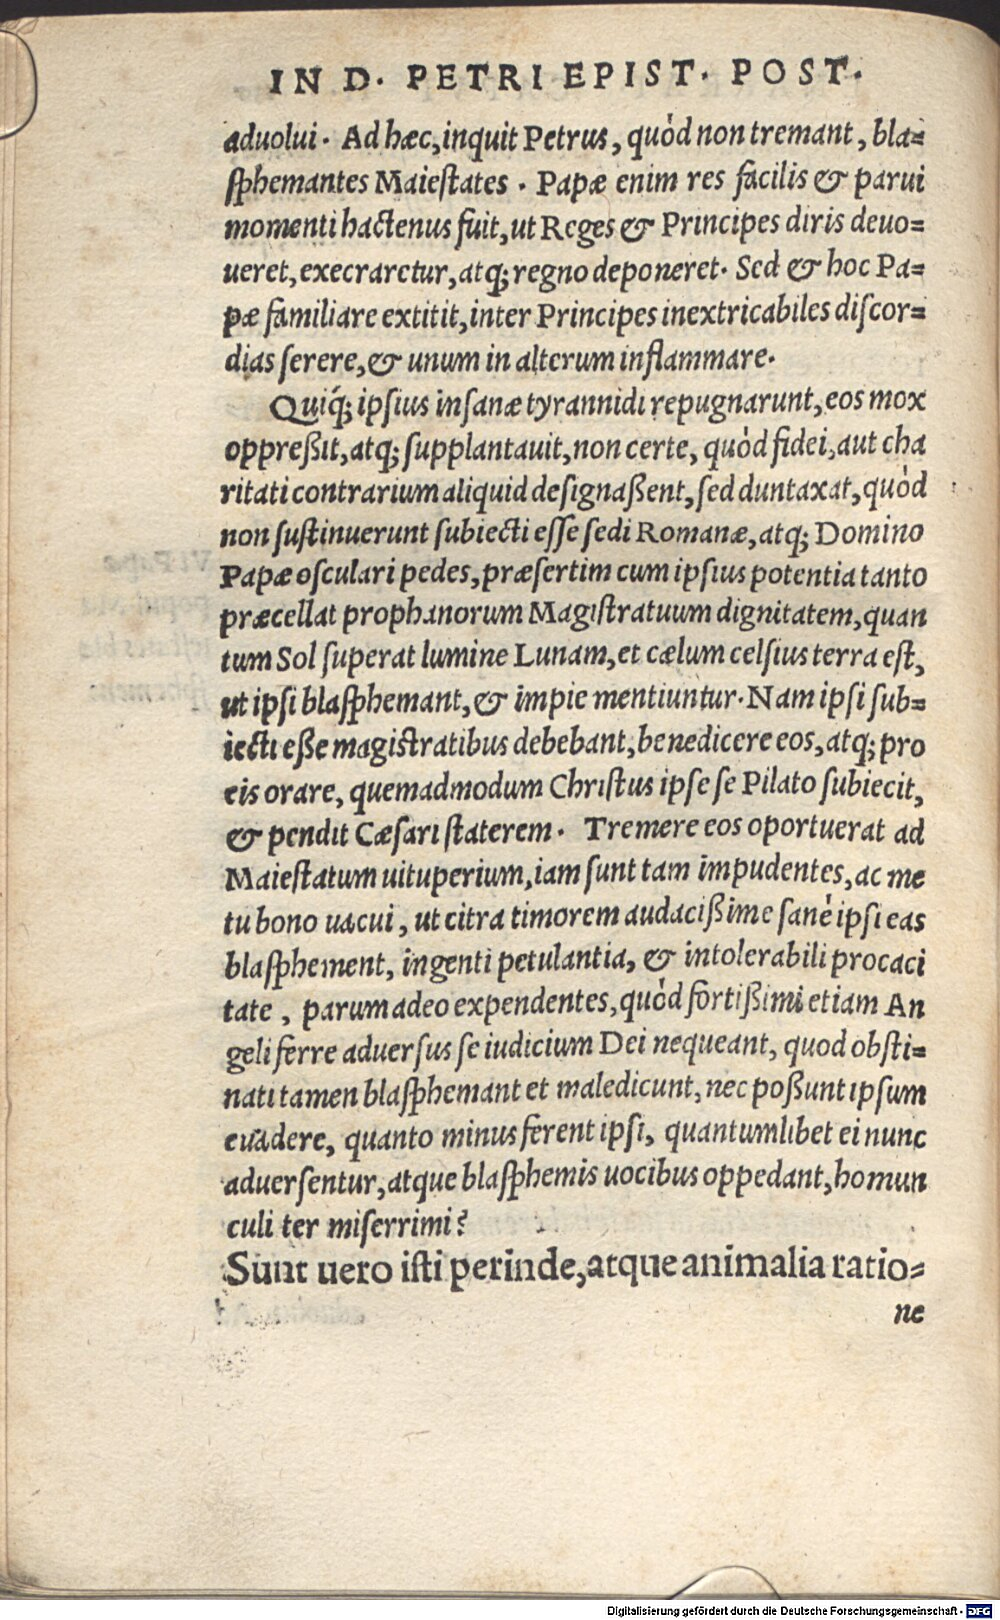 IN D. PETRI EPIST. POST.
aduolui. Ad hæc, inquit Petrus, quòd non tremant, bla=
ſphemantes Maieſtates. Papæ enim res facilis & parui
momenti hactenus fuit, ut Reges & Principes diris deuo=
ueret, execraretur, atq; regno deponeret. Sed & hoc Pa=
pæ familiare extitit, inter Principes inextricabiles diſcor=
dias ſerere, & unum in alterum inflammare.
Quiq́; ipſius inſanæ tyrannidi repugnarunt, eos mox
oppreßit, atq; ſupplantauit, non certe, quòd fidei, aut cha
ritati contrarium aliquid deſignaßent, ſed duntaxat, quòd
non ſuſtinuerunt ſubiecti eſſe ſedi Romanæ, atq; Domino
Papæ oſculari pedes, præſertim cum ipſius potentia tanto
præcellat prophanorum Magiſtratuum dignitatem, quan
tum Sol ſuperat lumine Lunam, et cælum celſius terra eſt,
ut ipſi blaſphemant, & impie mentiuntur. Nam ipſi ſub=
iecti eße magiſtratibus debebant, benedicere eos, atq; pro
eis orare, quemadmodum Chriſtus ipſe ſe Pilato ſubiecit,
& pendit Cæſari ſtaterem. Tremere eos oportuerat ad
Maieſtatum uituperium, iam ſunt tam impudentes, ac me
tu bono uacui, ut citra timorem audacißime ſanè ipſi eas
blaſphement, ingenti petulantia, & intolerabili procaci
tate, parum adeo expendentes, quòd fortißimi etiam An
geli ferre aduerſus ſe iudicium Dei nequeant, quod obſti=
nati tamen blaſphemant et maledicunt, nec poßunt ipſum
euadere, quanto minus ferent ipſi, quantumlibet ei nunc
aduerſentur, atque blaſphemis uocibus oppedant, homun
culi ter miſerrimi?
Sunt uero iſti perinde, atque animalia ratio=
ne
Digitalisierung gefördert durch die Deutsche Forschungsgemeinschaft - DFG